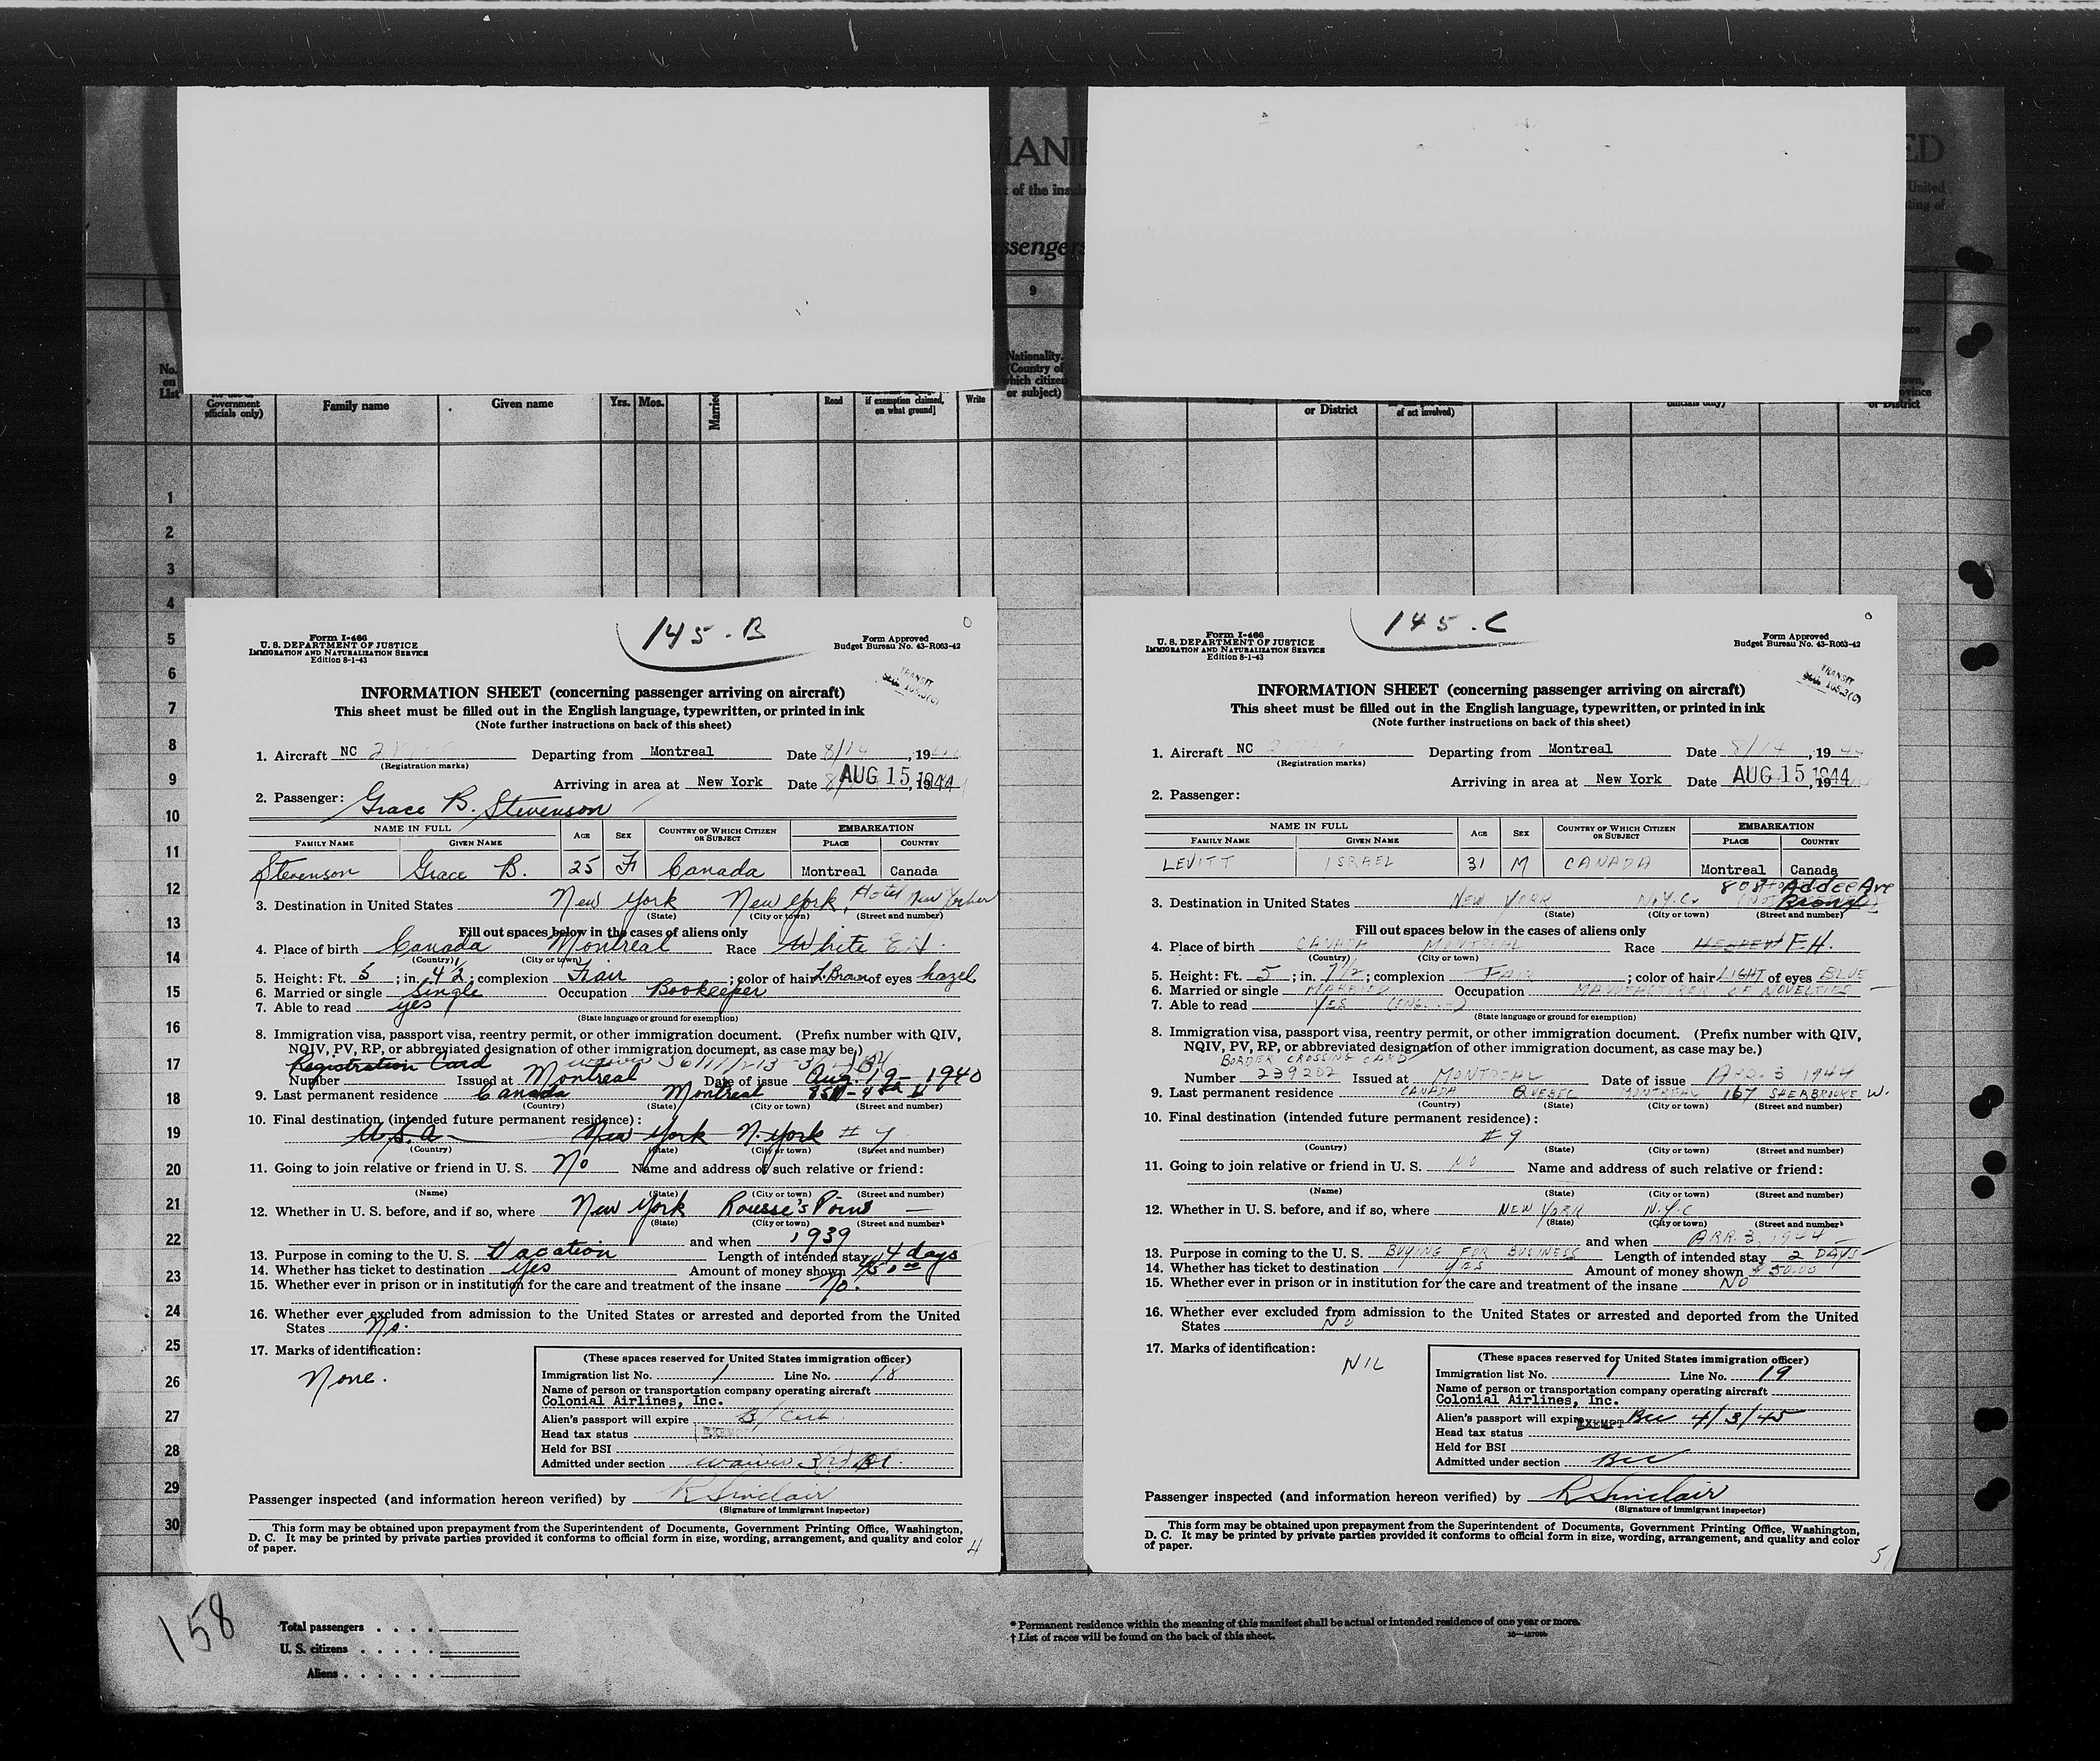 MANI
ED
t of the ins
United
ting of
assengers
9
No.
on
List
Government
officials only)
Family name
Given name
Yrs.
Mos.
Married
Read
if exemption claimed,
on what ground]
Write
Nationality.
(Country of
which citizen
or subject)
or District
of act involved)
officials only)
town,
province
or District
1
2
3
4
5
6
7
8
9
10
11
12
13
14
15
16
17
18
19
20
21
22
23
24
25
26
27
28
29
30
145-B
Form I-466
U. S. DEPARTMENT OF JUSTICE
IMMIGRATION AND NATURALIZATION SERVICE
Edition 8-1-43
Form Approved
Budget Bureau No. 43-R063-42
TRANSIT
INFORMATION SHEET (concerning passenger arriving on aircraft)
This sheet must be filled out in the English language, typewritten, or printed in ink
(Note further instructions on back of this sheet)
1. Aircraft NC Departing from Montreal Date 8/14, 1944
(Registration marks)
Arriving in area at New York Date AUG 15 1944
2. Passenger: Grace B. Stevenson
NAME IN FULL AGE SEX COUNTRY OF WHICH CITIZEN OR SUBJECT EMBARKATION
FAMILY NAME GIVEN NAME PLACE COUNTRY
Stevenson Grace B. 25 F Canada Montreal Canada
3. Destination in United States New York New York, Hotel New Yorker
(State) (City or town) (Street and number)
Fill out spaces below in the cases of aliens only
4. Place of birth Canada Montreal Race White EH.
(Country) (City or town)
5. Height: Ft. 5; in. 4½; complexion Fair; color of hair L.Brown of eyes hazel
6. Married or single Single Occupation Bookkeeper
7. Able to read yes
(State language or ground for exemption)
8. Immigration visa, passport visa, reentry permit, or other immigration document. (Prefix number with QIV,
NQIV, PV, RP, or abbreviated designation of other immigration document, as case may be.)
Registration Card waiver
Number Issued at Montreal Date of issue Aug. 19- 1940
9. Last permanent residence Canada Montreal
(Country) (State) (City or town) (Street and number)
10. Final destination (intended future permanent residence):
U.S.A. New York N. York #
(Country) (State) (City or town) (Street and number)
11. Going to join relative or friend in U. S. No Name and address of such relative or friend:
(Name) (State) (City or town) (Street and number)
12. Whether in U. S. before, and if so, where New York Rousse's Point —
(State) (City or town) (Street and number)
and when 1939
13. Purpose in coming to the U. S. Vacation Length of intended stay 4 days
14. Whether has ticket to destination Yes Amount of money shown
15. Whether ever in prison or in institution for the care and treatment of the insane No.
16. Whether ever excluded from admission to the United States or arrested and deported from the United
States No.
17. Marks of identification:
None.
(These spaces reserved for United States immigration officer)
Immigration list No. 1 Line No. 18
Name of person or transportation company operating aircraft
Colonial Airlines, Inc.
Alien's passport will expire
Head tax status EXEMPT
Held for BSI
Admitted under section waiver
Passenger inspected (and information hereon verified) by R Sinclair
(Signature of immigrant inspector)
This form may be obtained upon prepayment from the Superintendent of Documents, Government Printing Office, Washington,
D. C. It may be printed by private parties provided it conforms to official form in size, wording, arrangement, and quality and color
of paper.
4
145-C
Form I-466
U. S. DEPARTMENT OF JUSTICE
IMMIGRATION AND NATURALIZATION SERVICE
Edition 8-1-43
Form Approved
Budget Bureau No. 43-R063-42
TRANSIT
INFORMATION SHEET (concerning passenger arriving on aircraft)
This sheet must be filled out in the English language, typewritten, or printed in ink
(Note further instructions on back of this sheet)
1. Aircraft NC Departing from Montreal Date 8/14, 1944
(Registration marks)
Arriving in area at New York Date AUG 15 1944
2. Passenger:
NAME IN FULL AGE SEX COUNTRY OF WHICH CITIZEN OR SUBJECT EMBARKATION
FAMILY NAME GIVEN NAME PLACE COUNTRY
LEVITT ISRAEL 31 M CANADA Montreal Canada
808 Addee Ave
3. Destination in United States NEW YORK N.Y.C. Bronx
(State) (City or town) (Street and number)
Fill out spaces below in the cases of aliens only
4. Place of birth CANADA MONTREAL Race HEBREW E.H.
(Country) (City or town)
5. Height: Ft. 5; in. 7½; complexion FAIR; color of hair LIGHT of eyes BLUE
6. Married or single MARRIED Occupation MANUFACTURER OF NOVELTIES
7. Able to read YES (ENG.)
(State language or ground for exemption)
8. Immigration visa, passport visa, reentry permit, or other immigration document. (Prefix number with QIV,
NQIV, PV, RP, or abbreviated designation of other immigration document, as case may be.)
BORDER CROSSING CARD
Number 239202 Issued at MONTREAL Date of issue APR. 3 1944
9. Last permanent residence CANADA QUEBEC MONTREAL 167 SHERBROOKE W.
(Country) (State) (City or town) (Street and number)
10. Final destination (intended future permanent residence):
#9
(Country) (State) (City or town) (Street and number)
11. Going to join relative or friend in U. S. NO Name and address of such relative or friend:
(Name) (State) (City or town) (Street and number)
12. Whether in U. S. before, and if so, where NEW YORK N.Y.C
(State) (City or town) (Street and number)
and when APR. 3, 1944
13. Purpose in coming to the U. S. BUYING FOR BUSINESS Length of intended stay 2 DAYS
14. Whether has ticket to destination YES Amount of money shown $50.00
15. Whether ever in prison or in institution for the care and treatment of the insane NO
16. Whether ever excluded from admission to the United States or arrested and deported from the United
States NO
17. Marks of identification:
NIL
(These spaces reserved for United States immigration officer)
Immigration list No. 1 Line No. 19
Name of person or transportation company operating aircraft
Colonial Airlines, Inc.
Alien's passport will expire Bcc 4/3/45
Head tax status EXEMPT
Held for BSI
Admitted under section Bcc
Passenger inspected (and information hereon verified) by R Sinclair
(Signature of immigrant inspector)
This form may be obtained upon prepayment from the Superintendent of Documents, Government Printing Office, Washington,
D. C. It may be printed by private parties provided it conforms to official form in size, wording, arrangement, and quality and color
of paper.
5
158
Total passengers
U. S. citizens
Aliens
* Permanent residence within the meaning of this manifest shall be actual or intended residence of one year or more.
† List of races will be found on the back of this sheet.